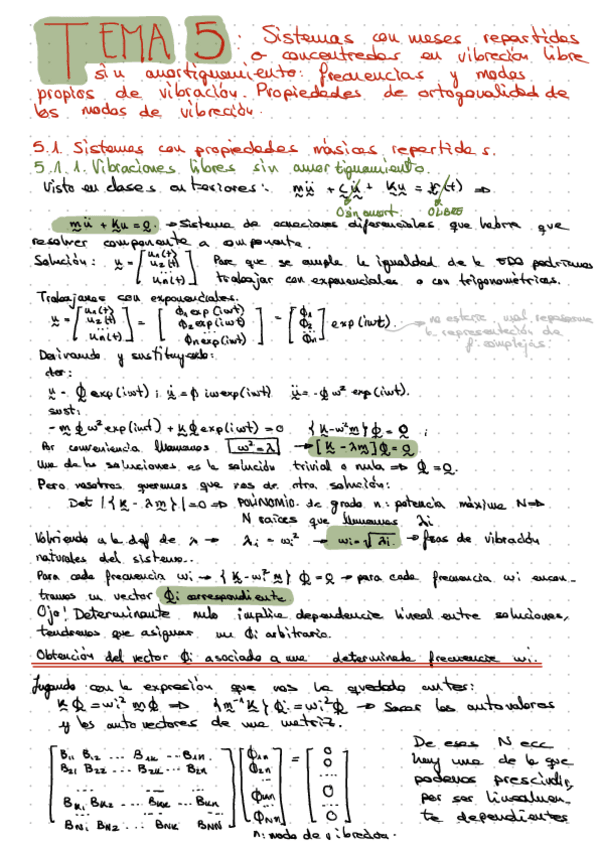 TEMA 5: Sistemas con masas repartidas
o concentradas en vibración libre
sin amortiguamiento: frecuencias y modos
propios de vibración. Propiedades de ortogonalidad de
los modos de vibración.
5.1. Sistemas con propiedades másicas repartidas.
5.1.1. Vibraciones libres sin amortiguamiento.
Visto en clases anteriores: mü + cu̇ + Ku = r(t) ⇒
0 sin amort. 0 LIBRE
mü + Ku = 0. → Sistema de ecuaciones diferenciales que habrá que
resolver componente a componente.
Solución: u = [u1(t) u2(t) ... un(t)] Para que se cumpla la igualdad de la EDO podríamos
trabajar con exponenciales o con trigonométricas.
Trabajamos con exponenciales.
u = [u1(t) u2(t) ... un(t)] = [ϕ1 exp(iωt) ϕ2 exp(iωt) ϕn exp(iωt)] = [ϕ1 ϕ2 ϕn] exp(iωt). → no estaría mal repasarme
la representación de
f. complejas.
Derivando y sustituyendo:
der:
u = ϕ exp(iωt); u̇ = ϕ iω exp(iωt) ü = -ϕ ω² exp(iωt).
sust:
-m ϕ ω² exp(iωt) + K ϕ exp(iωt) = 0 {K-ω²m}ϕ = 0 ;
Por conveniencia llamamos ω² = λ → [K - λm]ϕ = 0
Una de las soluciones es la solución trivial o nula ⇒ ϕ = 0.
Pero nosotros queremos que nos de otra solución:
Det |{K - λm}| = 0 ⇒ POLINOMIO de grado n: potencia máxima N ⇒
N raíces que llamamos λi
Volviendo a la def de λ → λi = ωi² → ωi = √λi → fcas de vibración
naturales del sistema.
Para cada frecuencia ωi → {K - ωi² m} ϕ = 0 → para cada frecuencia ωi encon-
tramos un vector ϕi correspondiente
Ojo! Determinante nulo implica dependencia lineal entre soluciones,
tendremos que asignar un ϕi arbitrario.
Obtención del vector ϕi asociado a una determinada frecuencia ωi.
Jugando con la expresión que nos ha quedado antes:
K ϕ = ωi² m ϕ ⇒ {m⁻¹K} ϕ = ωi² ϕ → Sacar los autovalores
y los autovectores de una matriz.
[B11 B12 ... B1k ... B1n] [ϕ1n] = [0]
[B21 B22 ... B2k ... B2n] [ϕ2n] [0]
[... ... ... ...] [...] [...]
[Bk1 Bk2 ... Bkk ... Bkn] [ϕkn] [0]
[... ... ... ...] [...] [...]
[BN1 BN2 ... BNk ... BNN] [ϕNn] [0]
n: modo de vibración.
De esas N ecc
hay una de la que
podemos prescindir,
por ser linealmen-
te dependientes